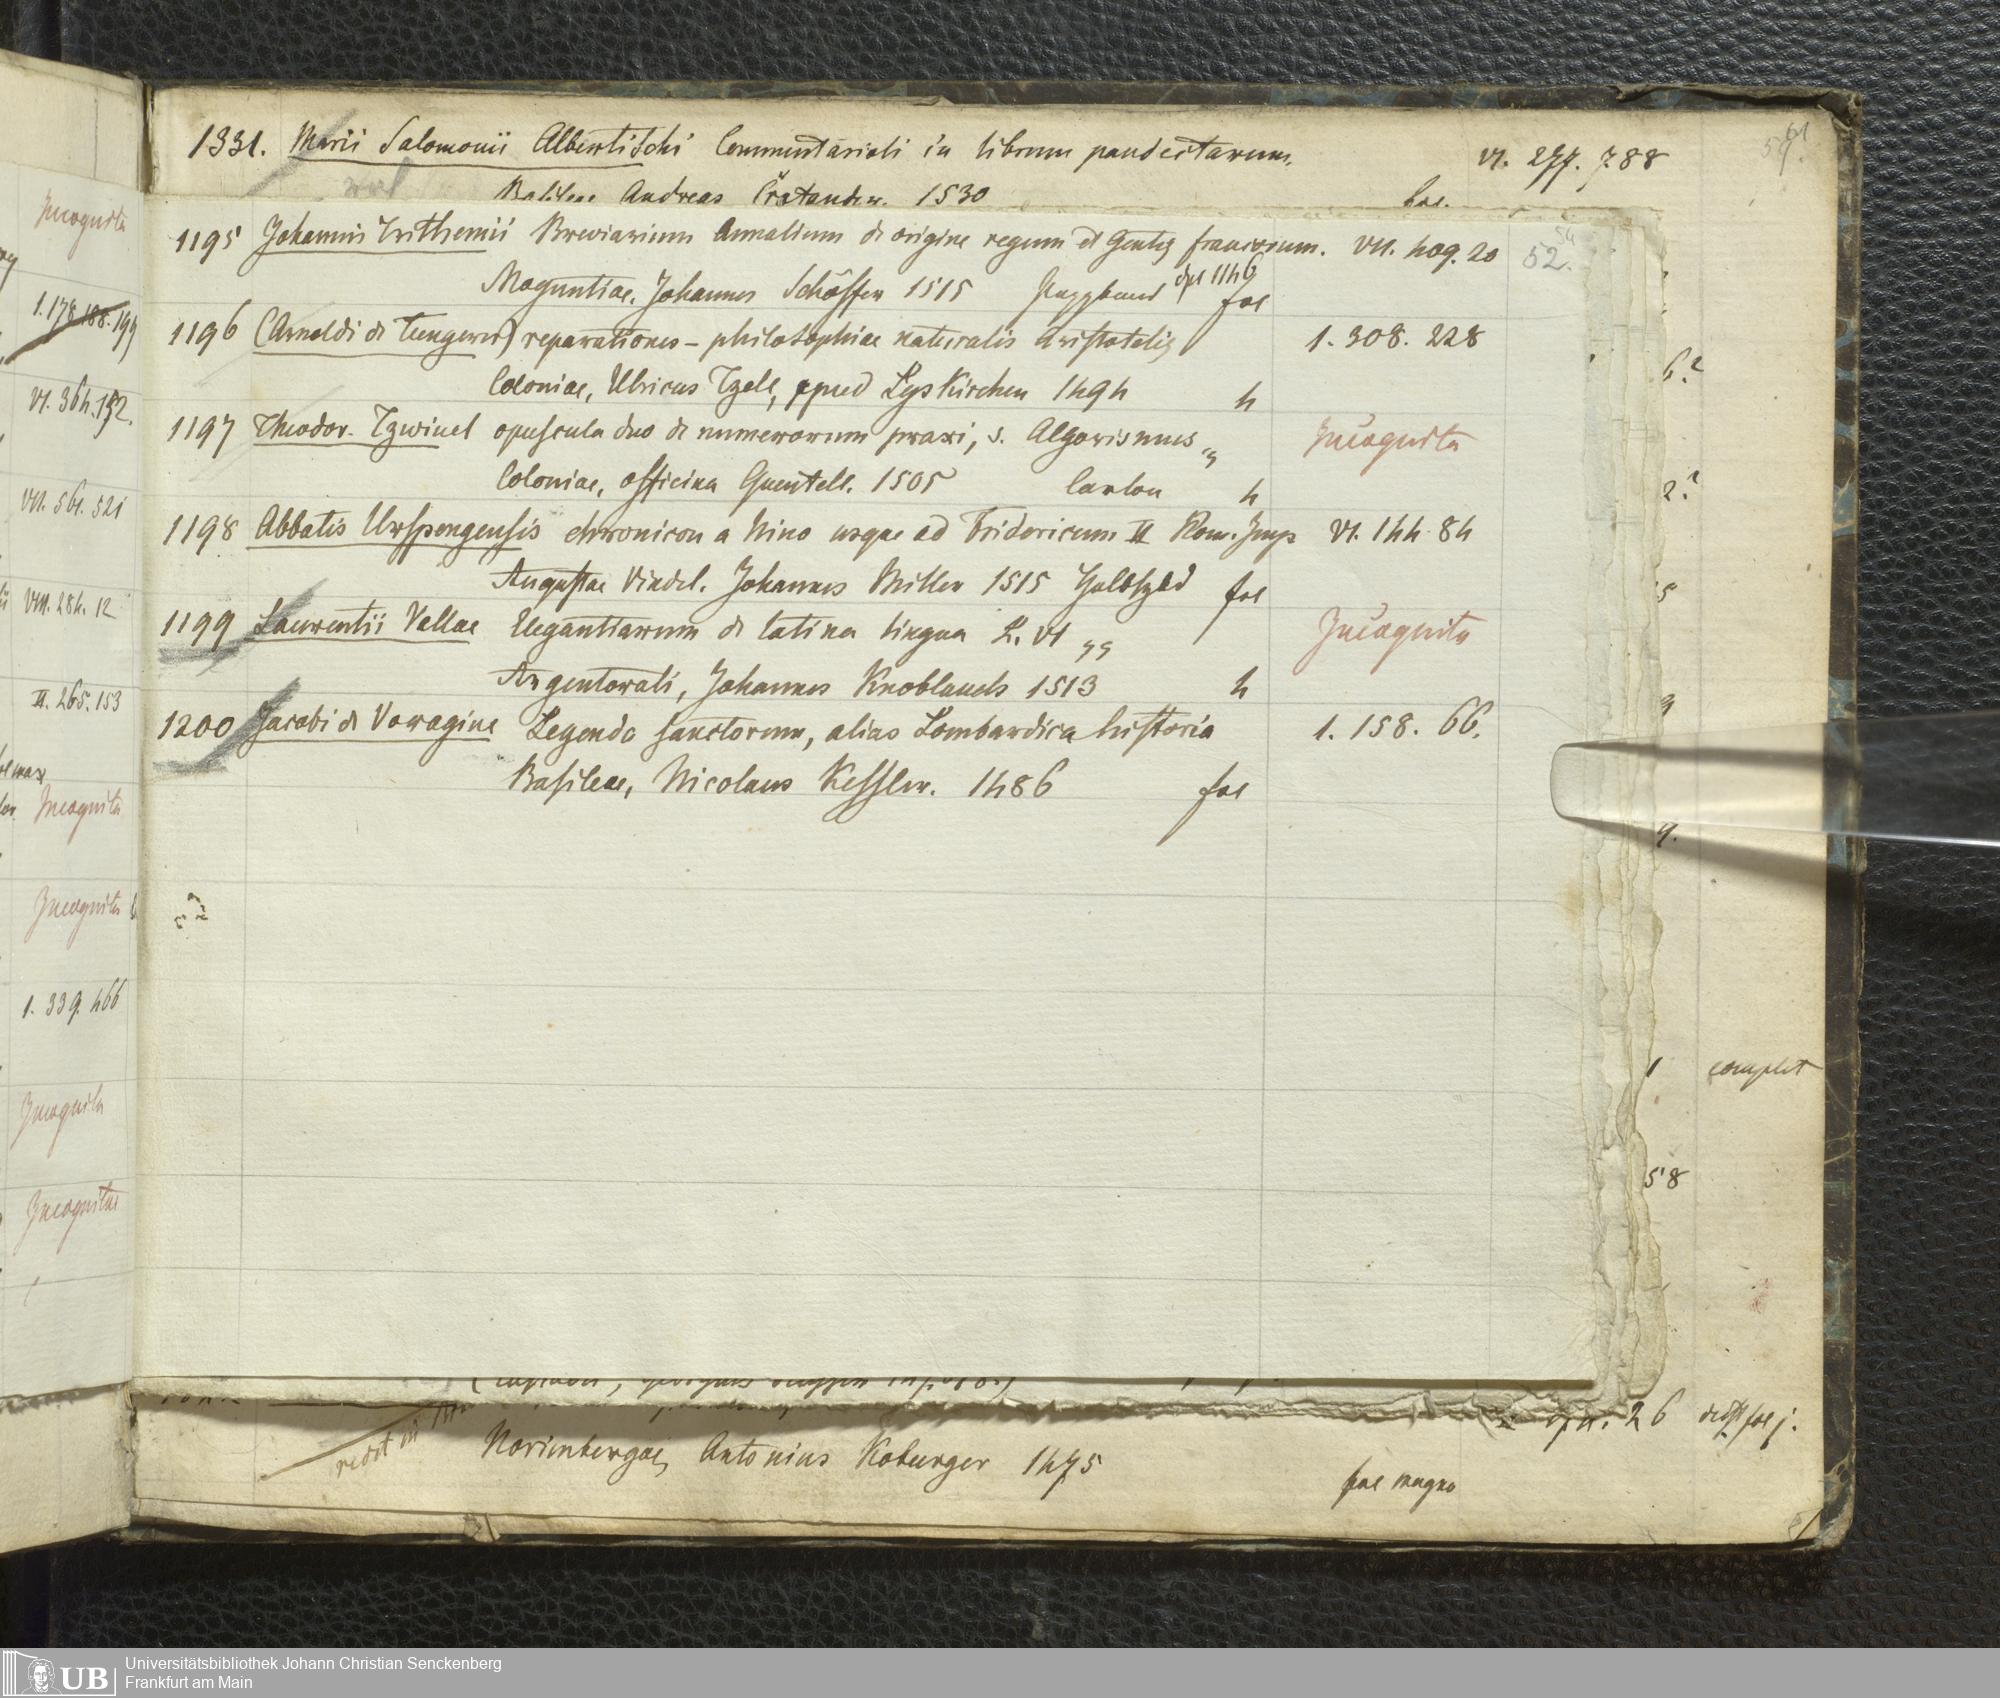 1331. Marii Salomonii Albertischi Commentarioli in librum pandectarum. VI. 277. 788
Basileae Andreas Cratander. 1530 fol.
1195 Johannis Trithemii Breviarium Annalium de origine regum et Gentis francorum. VII. 409. 20
52.
Moguntiae, Johannes Schöffer 1515 Pappband dpl 1146 fol
1196 (Arnoldi de Tungerns) reparationes – philosophiae naturalis Aristotelis 1. 308. 228
Coloniae, Ulricus Tzell, apud Lyskirchen 1494 4
1197 Theodor. Tzwivel opuscula duo de numerorum praxi, s. Algorismus „ Incognita
Coloniae, officina Quentell. 1505 Carton 4
1198 Abbatis Urspergensis chronicon a Nino usque ad Fridericum II Rom. Imp VI. 144 84
Augustae Vindel. Johannes Miller 1515 Halbfzbd fol
1199 Laurentii Vallae Elegantiarum de latina lingua L. VI „ Incognita
Argentorati, Johannes Knoblauch 1513 4
1200 Jacobi de Voragine Legenda sanctorum, alias Lombardica historia 1. 158. 66.
Basileae, Nicolaus Kessler. 1486 fol
Incognita
1. 178 188. 199
VI. 364. 152.
VII. 561. 521
VIII. 284. 12
II. 265. 153
Incognita
Incognita
1. 339. 466
Incognita
Incognita
6?
2?
5
9.
1 complet
58
26
redit in
Norimbergae, Antonius Koburger 1475
fol magno
UB
Universitätsbibliothek Johann Christian Senckenberg
Frankfurt am Main